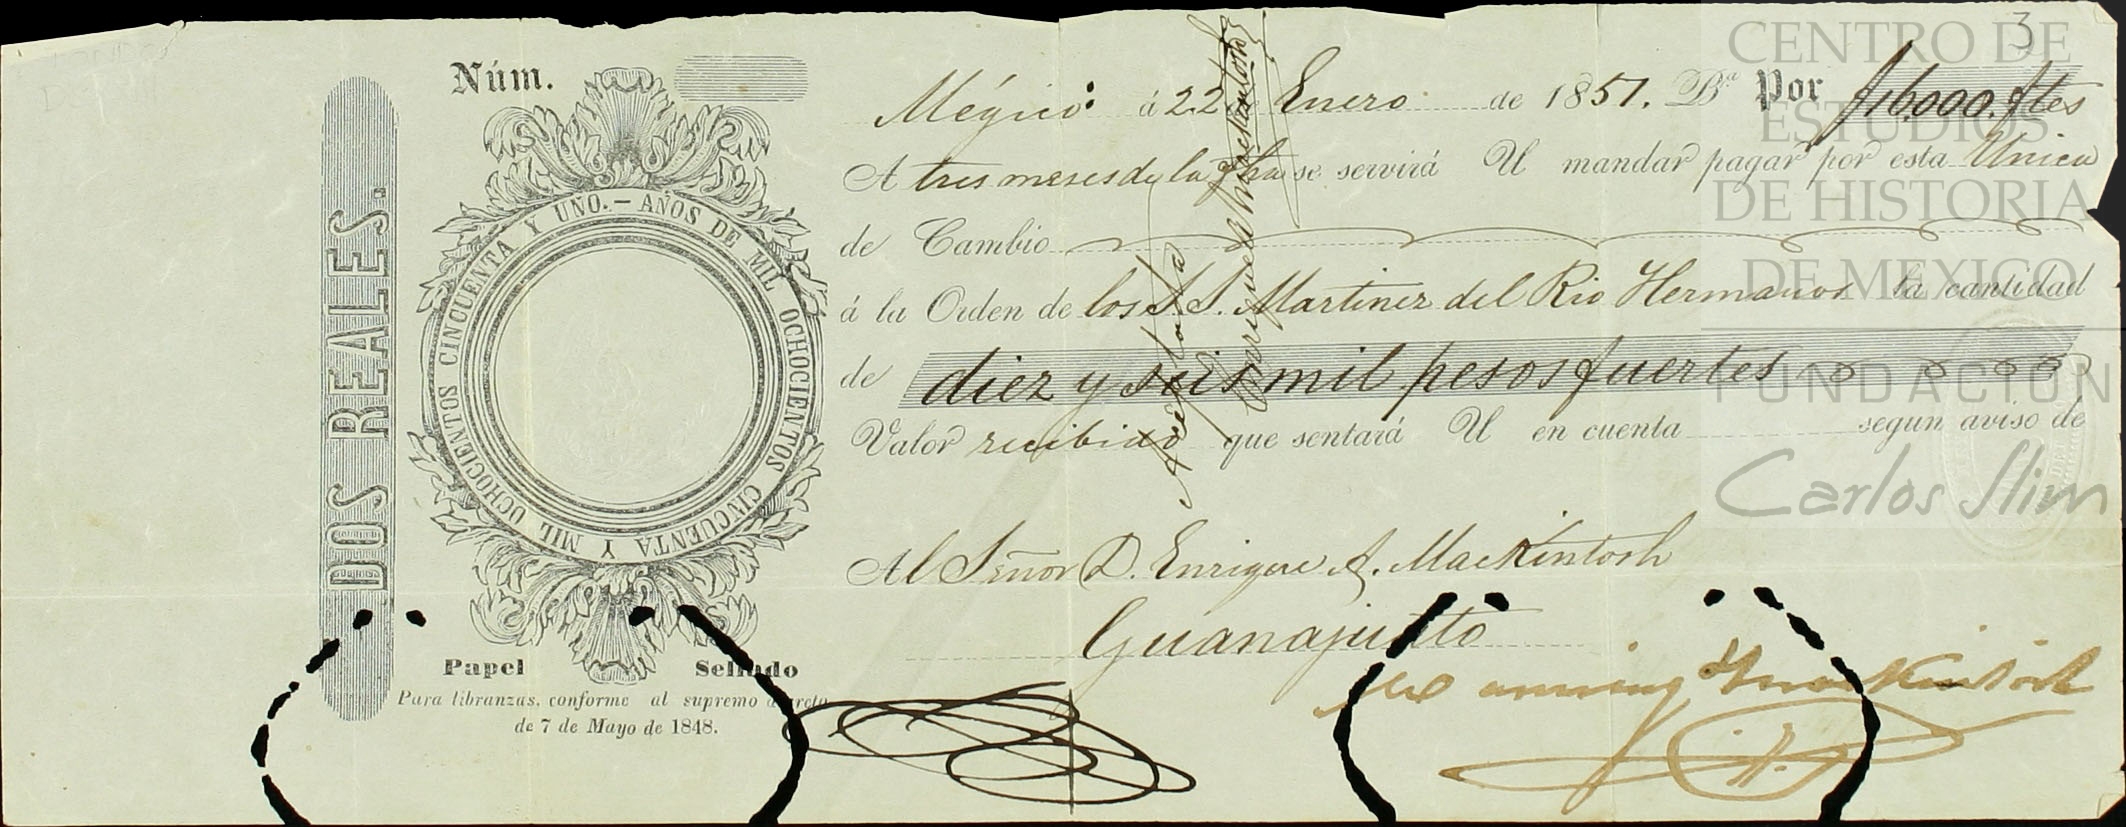 3
Núm.
Mégico: á 22 de Enero de 1851. Bª Por $16.000. ftes
A tres meses de la fha se servirá U mandar pagar por esta Unica
de Cambio
á la Orden de los S.S. Martinez del Rio Hermanos la cantidad
de diez y seis mil pesos fuertes
Valor recibido que sentará U en cuenta segun aviso de
Al Señor D. Enrique A. MacKintosh
Guanajuato
Manning MacKintosh
Aceptada
DOS REALES.
AÑOS DE MIL OCHOCIENTOS CINCUENTA Y MIL OCHOCIENTOS CINCUENTA Y UNO.
Papel Sellado
Para libranzas, conforme al supremo decreto
de 7 de Mayo de 1848.
CENTRO DE
ESTUDIOS
DE HISTORIA
DE MEXICO
FUNDACIÓN
Carlos Slim